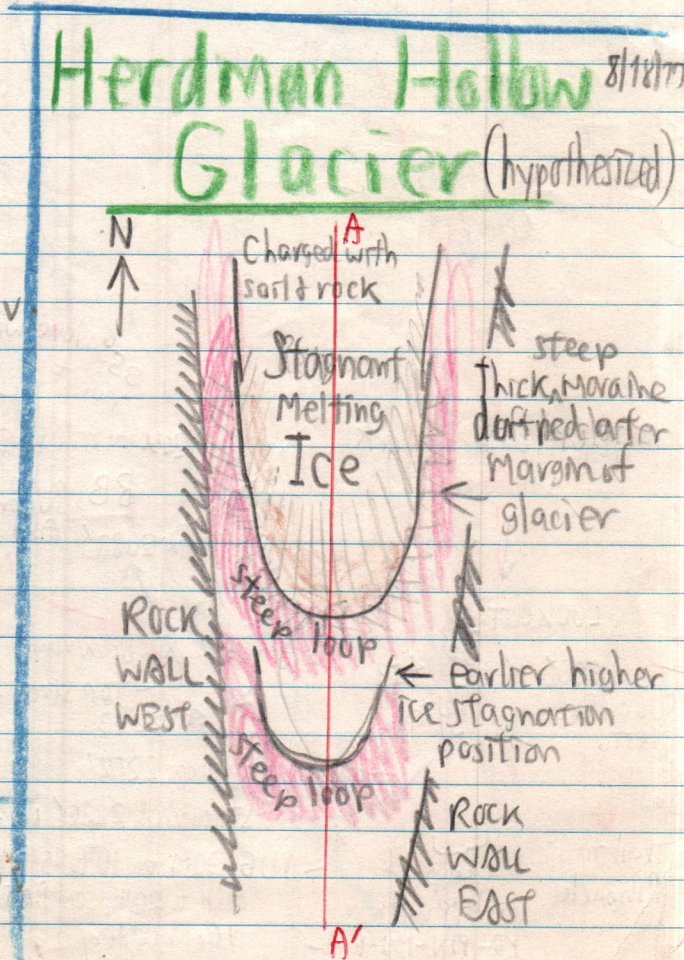 Herdman Hollow
8/18/77
Glacier (hypothesized)
N
A
V
Charged with
soil & rock
Stagnant
Melting
Ice
steep
thick moraine
margin of
glacier
steep loop
ROCK
WALL
WEST
earlier higher
ice stagnation
position
steep loop
ROCK
WALL
EAST
A'